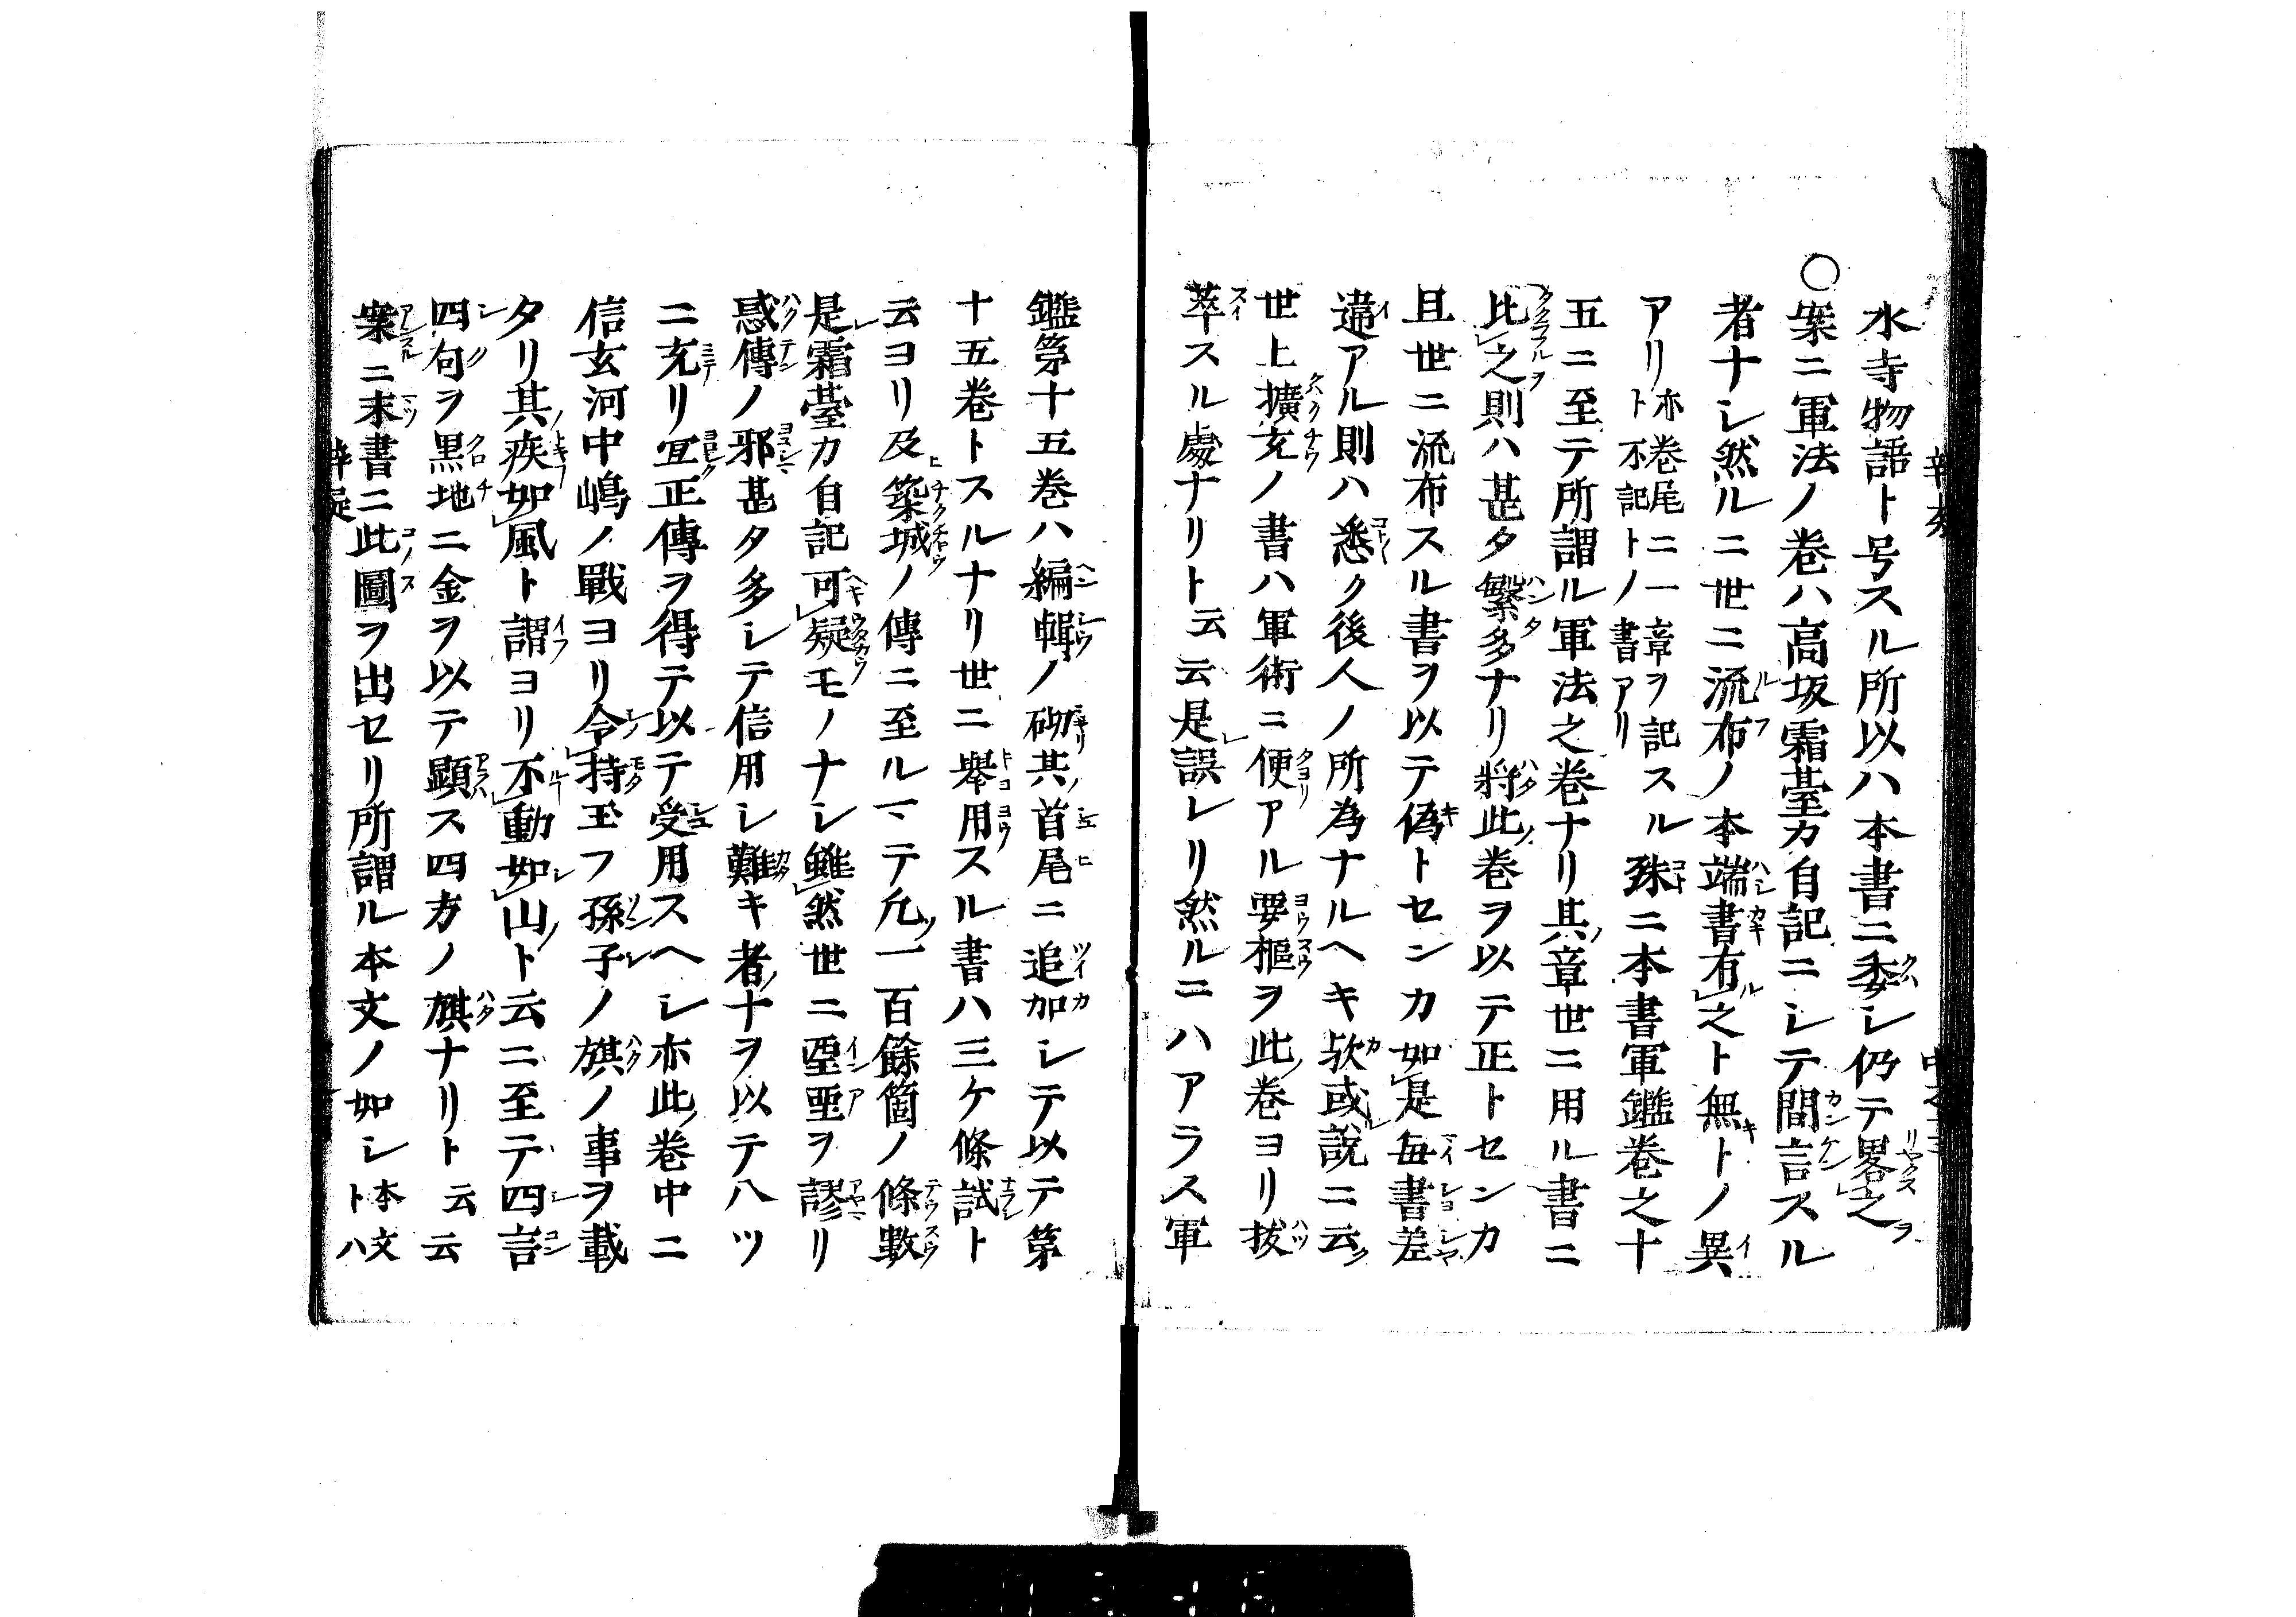 水寺物語ト号スル所以ハ本書ニ委シ仍テ畧之
○案ニ軍法ノ巻ハ高坂霜臺カ自記ニシテ間言スル
者ナシ然ルニ世ニ流布ノ本端書有之ト無トノ異
アリ亦巻尾ニ一章ヲ記スルト不記トノ書アリ殊ニ本書軍鑑巻之十
五ニ至テ所謂ル軍法之巻ナリ其章世ニ用ル書ニ
比之則ハ甚タ繁多ナリ将此巻ヲ以テ正トセンカ
且世ニ流布スル書ヲ以テ偽トセンカ如是毎書差
違アル則ハ悉ク後人ノ所為ナルヘキ歟或説ニ云
世上擴充ノ書ハ軍術ニ便アル要樞ヲ此巻ヨリ抜
萃スル處ナリト云云是誤レリ然ルニハアラス軍
鑑第十五巻ハ編輯ノ砌其首尾ニ追加シテ以テ第
十五巻トスルナリ世ニ擧用スル書ハ三ケ條試ト
云ヨリ及築城ノ傳ニ至ルマテ凡一百餘箇ノ條數
是霜臺カ自記可疑モノナシ雖然世ニ堙亜ヲ謬リ
惑傳ノ邪甚タ多シテ信用シ難キ者ナヲ以テ八ツ
ニ充リ冝正傳ヲ得テ以テ受用スヘシ亦此巻中ニ
信玄河中嶋ノ戰ヨリ令持玉フ孫子ノ旗ノ事ヲ載
タリ其疾如風ト謂ヨリ不動如山ト云ニ至テ四言
四句ヲ黒地ニ金ヲ以テ顕ス四方ノ旗ナリト云云
案ニ末書ニ此圖ヲ出セリ所謂ル本文ノ如シ本文トハ